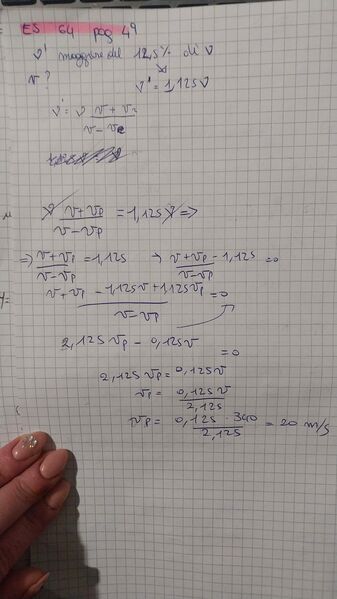 ES 64 pag 49
ν' maggiore del 12,5% di ν
v? ν' = 1,125ν
ν' = ν (v + vr)/(v - ve)
ν (v + vp)/(v - vp) = 1,125 ν =>
=> (v + vp)/(v - vp) = 1,125 → (v + vp)/(v - vp) - 1,125 = 0
(v + vp - 1,125v + 1,125vp)/(v - vp) = 0
2,125 vp - 0,125v = 0
2,125 vp = 0,125v
vp = 0,125v/2,125
vp = (0,125 · 340)/2,125 = 20 m/s